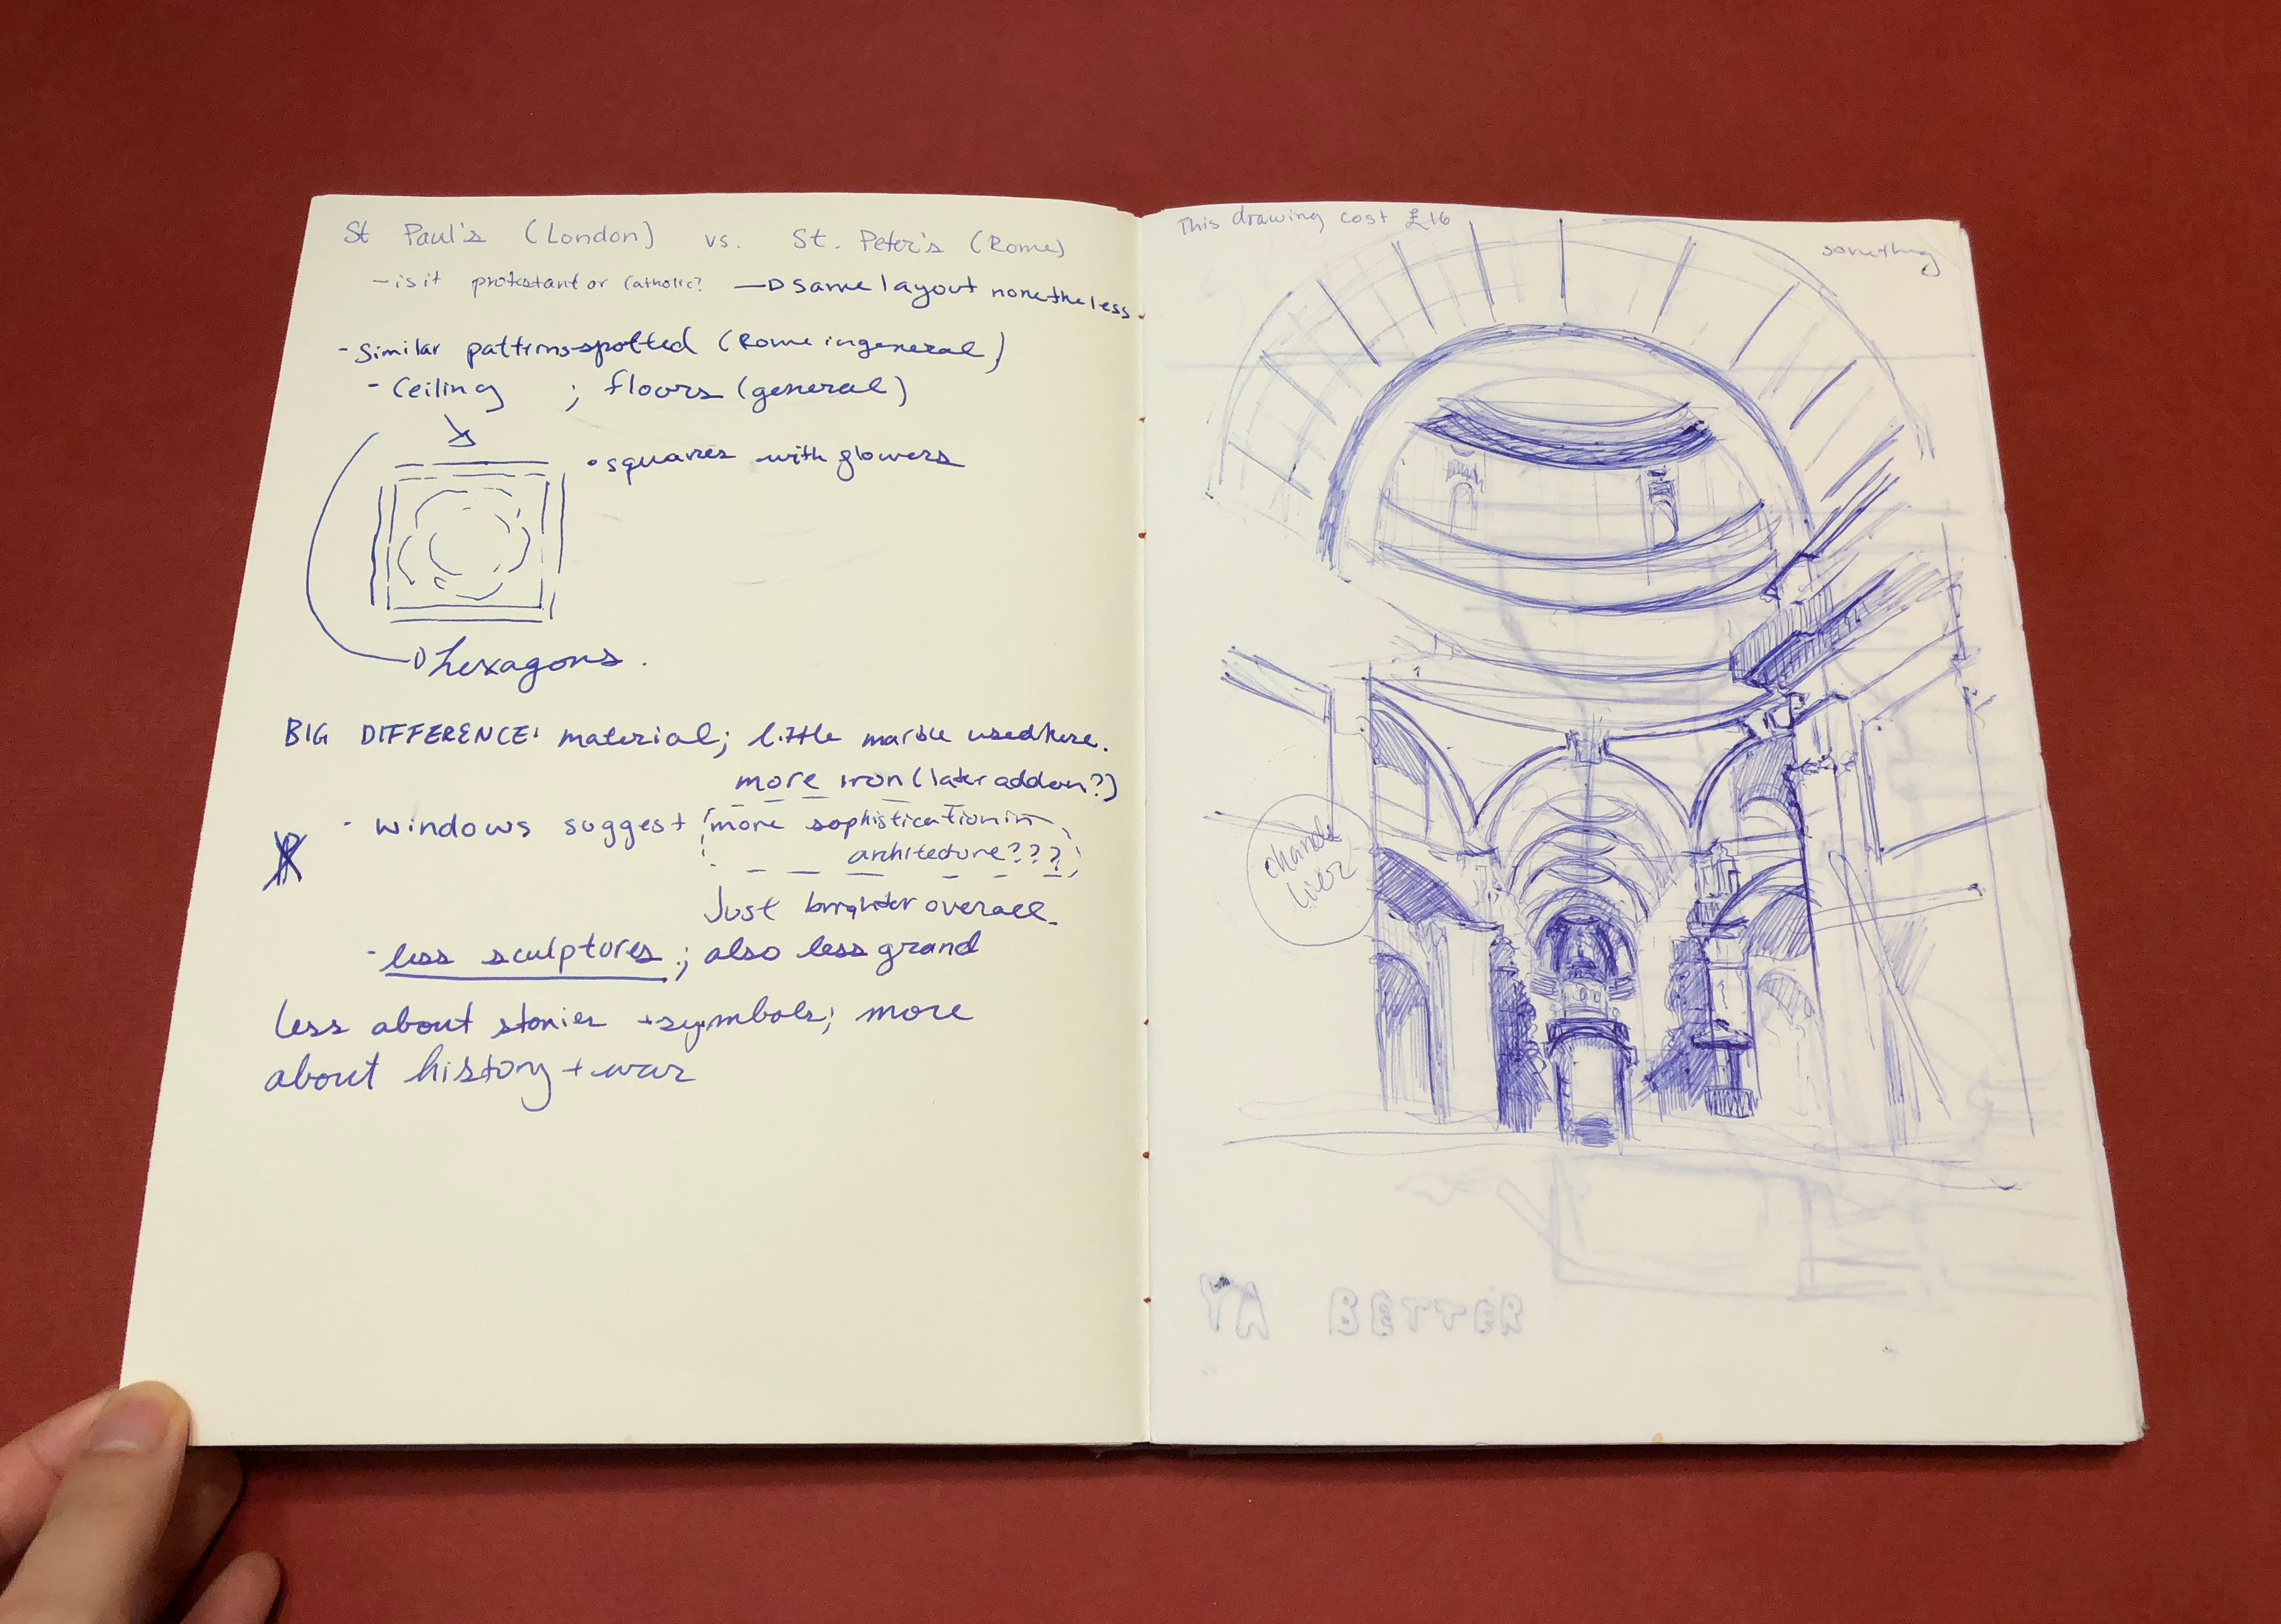 St Paul's (London) vs. St. Peter's (Rome)
- is it protestant or Catholic? → same layout nonetheless
- Similar patterns spotted (Rome in general)
- Ceiling ; floors (general)
• squares with flowers
hexagons.
BIG DIFFERENCE: material; little marble used here.
more iron (later addon?)
- windows suggest more sophistication in
architecture???
Just brighter overall
- less sculptures; also less grand
less about stories + symbols; more
about history + war
This drawing cost £16
something
chande
lier
BETTER